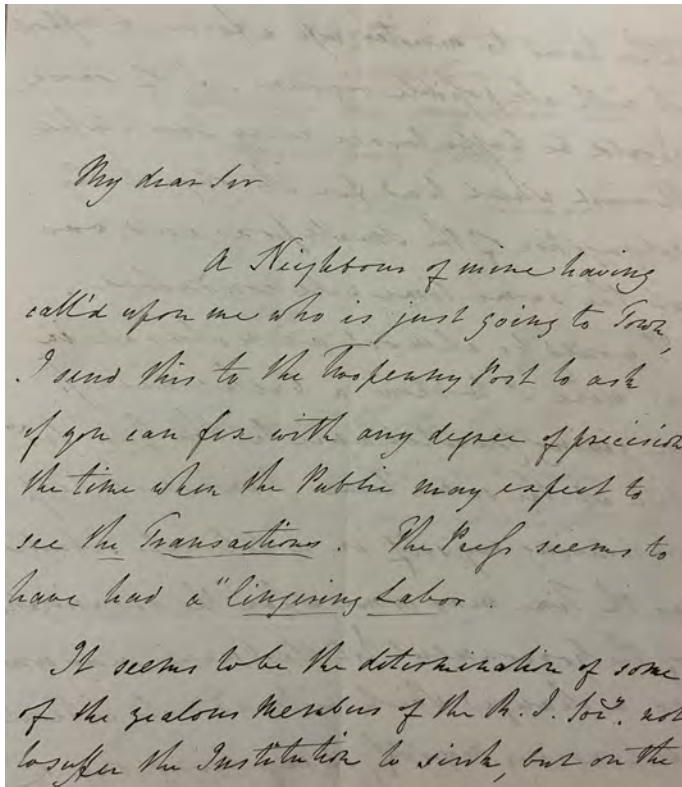 My dear Sir
A Neighbour of mine having
call'd upon me who is just going to Town,
I send this to the Twopenny Post to ask
if you can fix with any degree of precision
the time when the Public may expect to
see the Transactions. The Press seems to
have had a "lingering Labor.
It seems to be the determination of some
of the zealous Members of the R. I. Socy. not
to suffer the Institution to sink, but on the